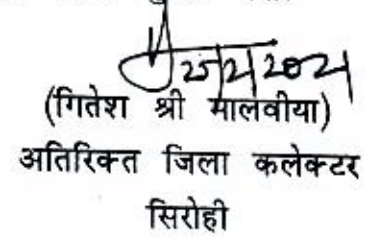 25/2/2021
(गितेश श्री मालवीया)
अतिरिक्त जिला कलेक्टर
सिरोही